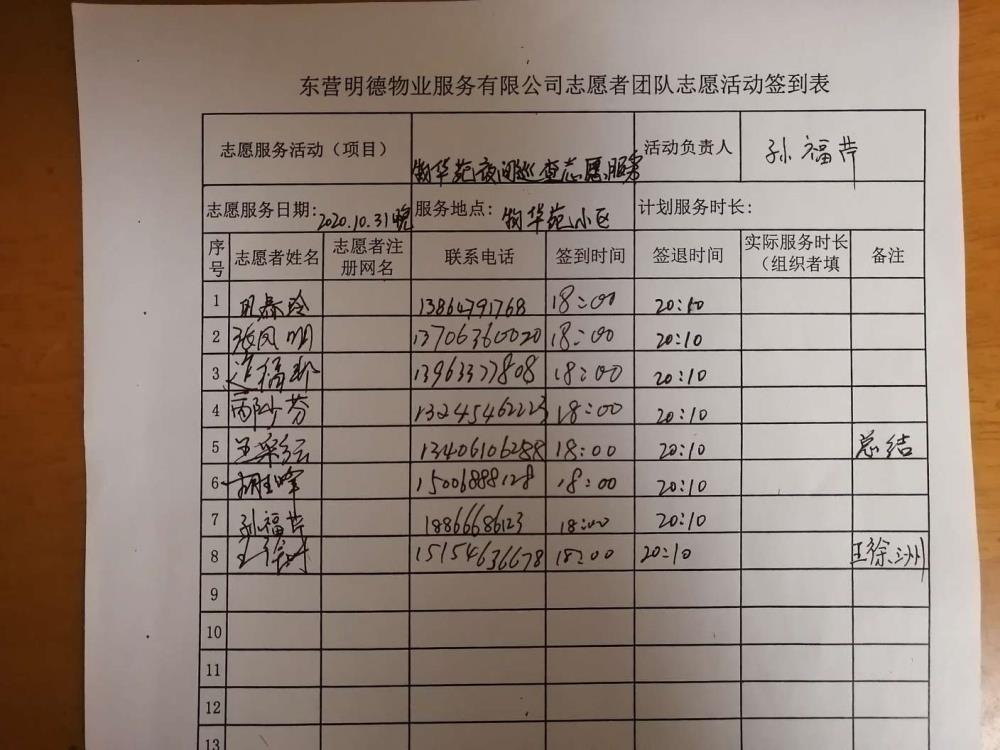 东营明德物业服务有限公司志愿者团队志愿活动签到表
志愿服务活动（项目） 物华苑夜间巡查志愿服务 活动负责人 孙福芹
志愿服务日期: 2020.10.31晚 服务地点: 物华苑小区 计划服务时长:
序号 志愿者姓名 志愿者注册网名 联系电话 签到时间 签退时间 实际服务时长（组织者填 备注
1 13864791768 18:00 20:10
2 张凤明 13706360020 18:00 20:10
3 13963377808 18:00 20:10
4 13245462223 18:00 20:10
5 王彩云 13406106288 18:00 20:10 总结
6 胡胜峰 15006888128 18:00 20:10
7 孙福芹 18866686123 18:00 20:10
8 王徐州 15154636678 18:00 20:10 王徐州
9
10
11
12
13